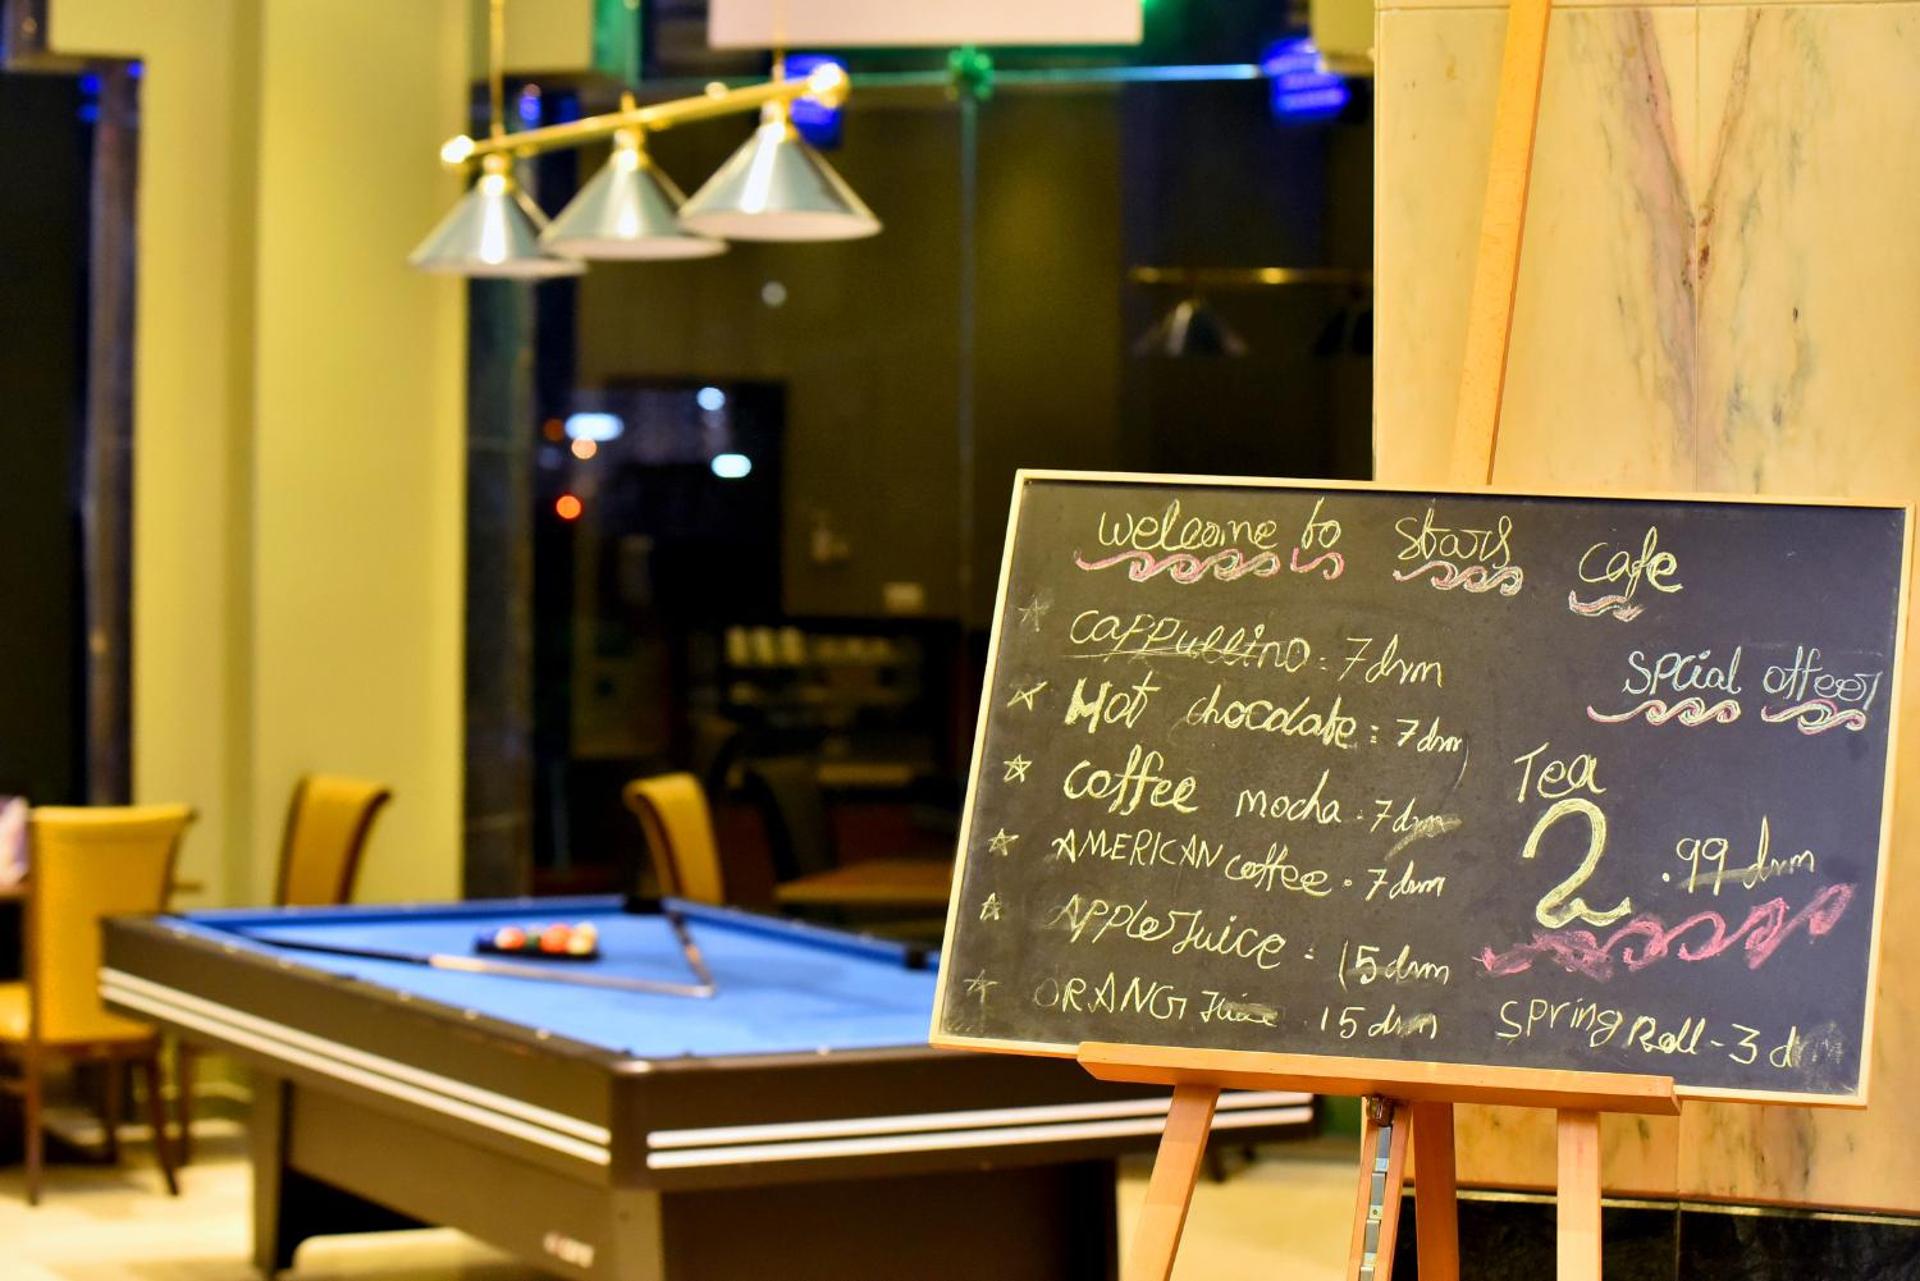 welcome to stars cafe
cappullino: 7 drm
Hot chocolate: 7 drm
coffee mocha: 7 drm
AMERICAN coffee. 7 drm
Apple Juice: 15 drm
ORANG Juice 15 drm
spcial offeer
Tea
2.99 drm
Spring Roll - 3 d